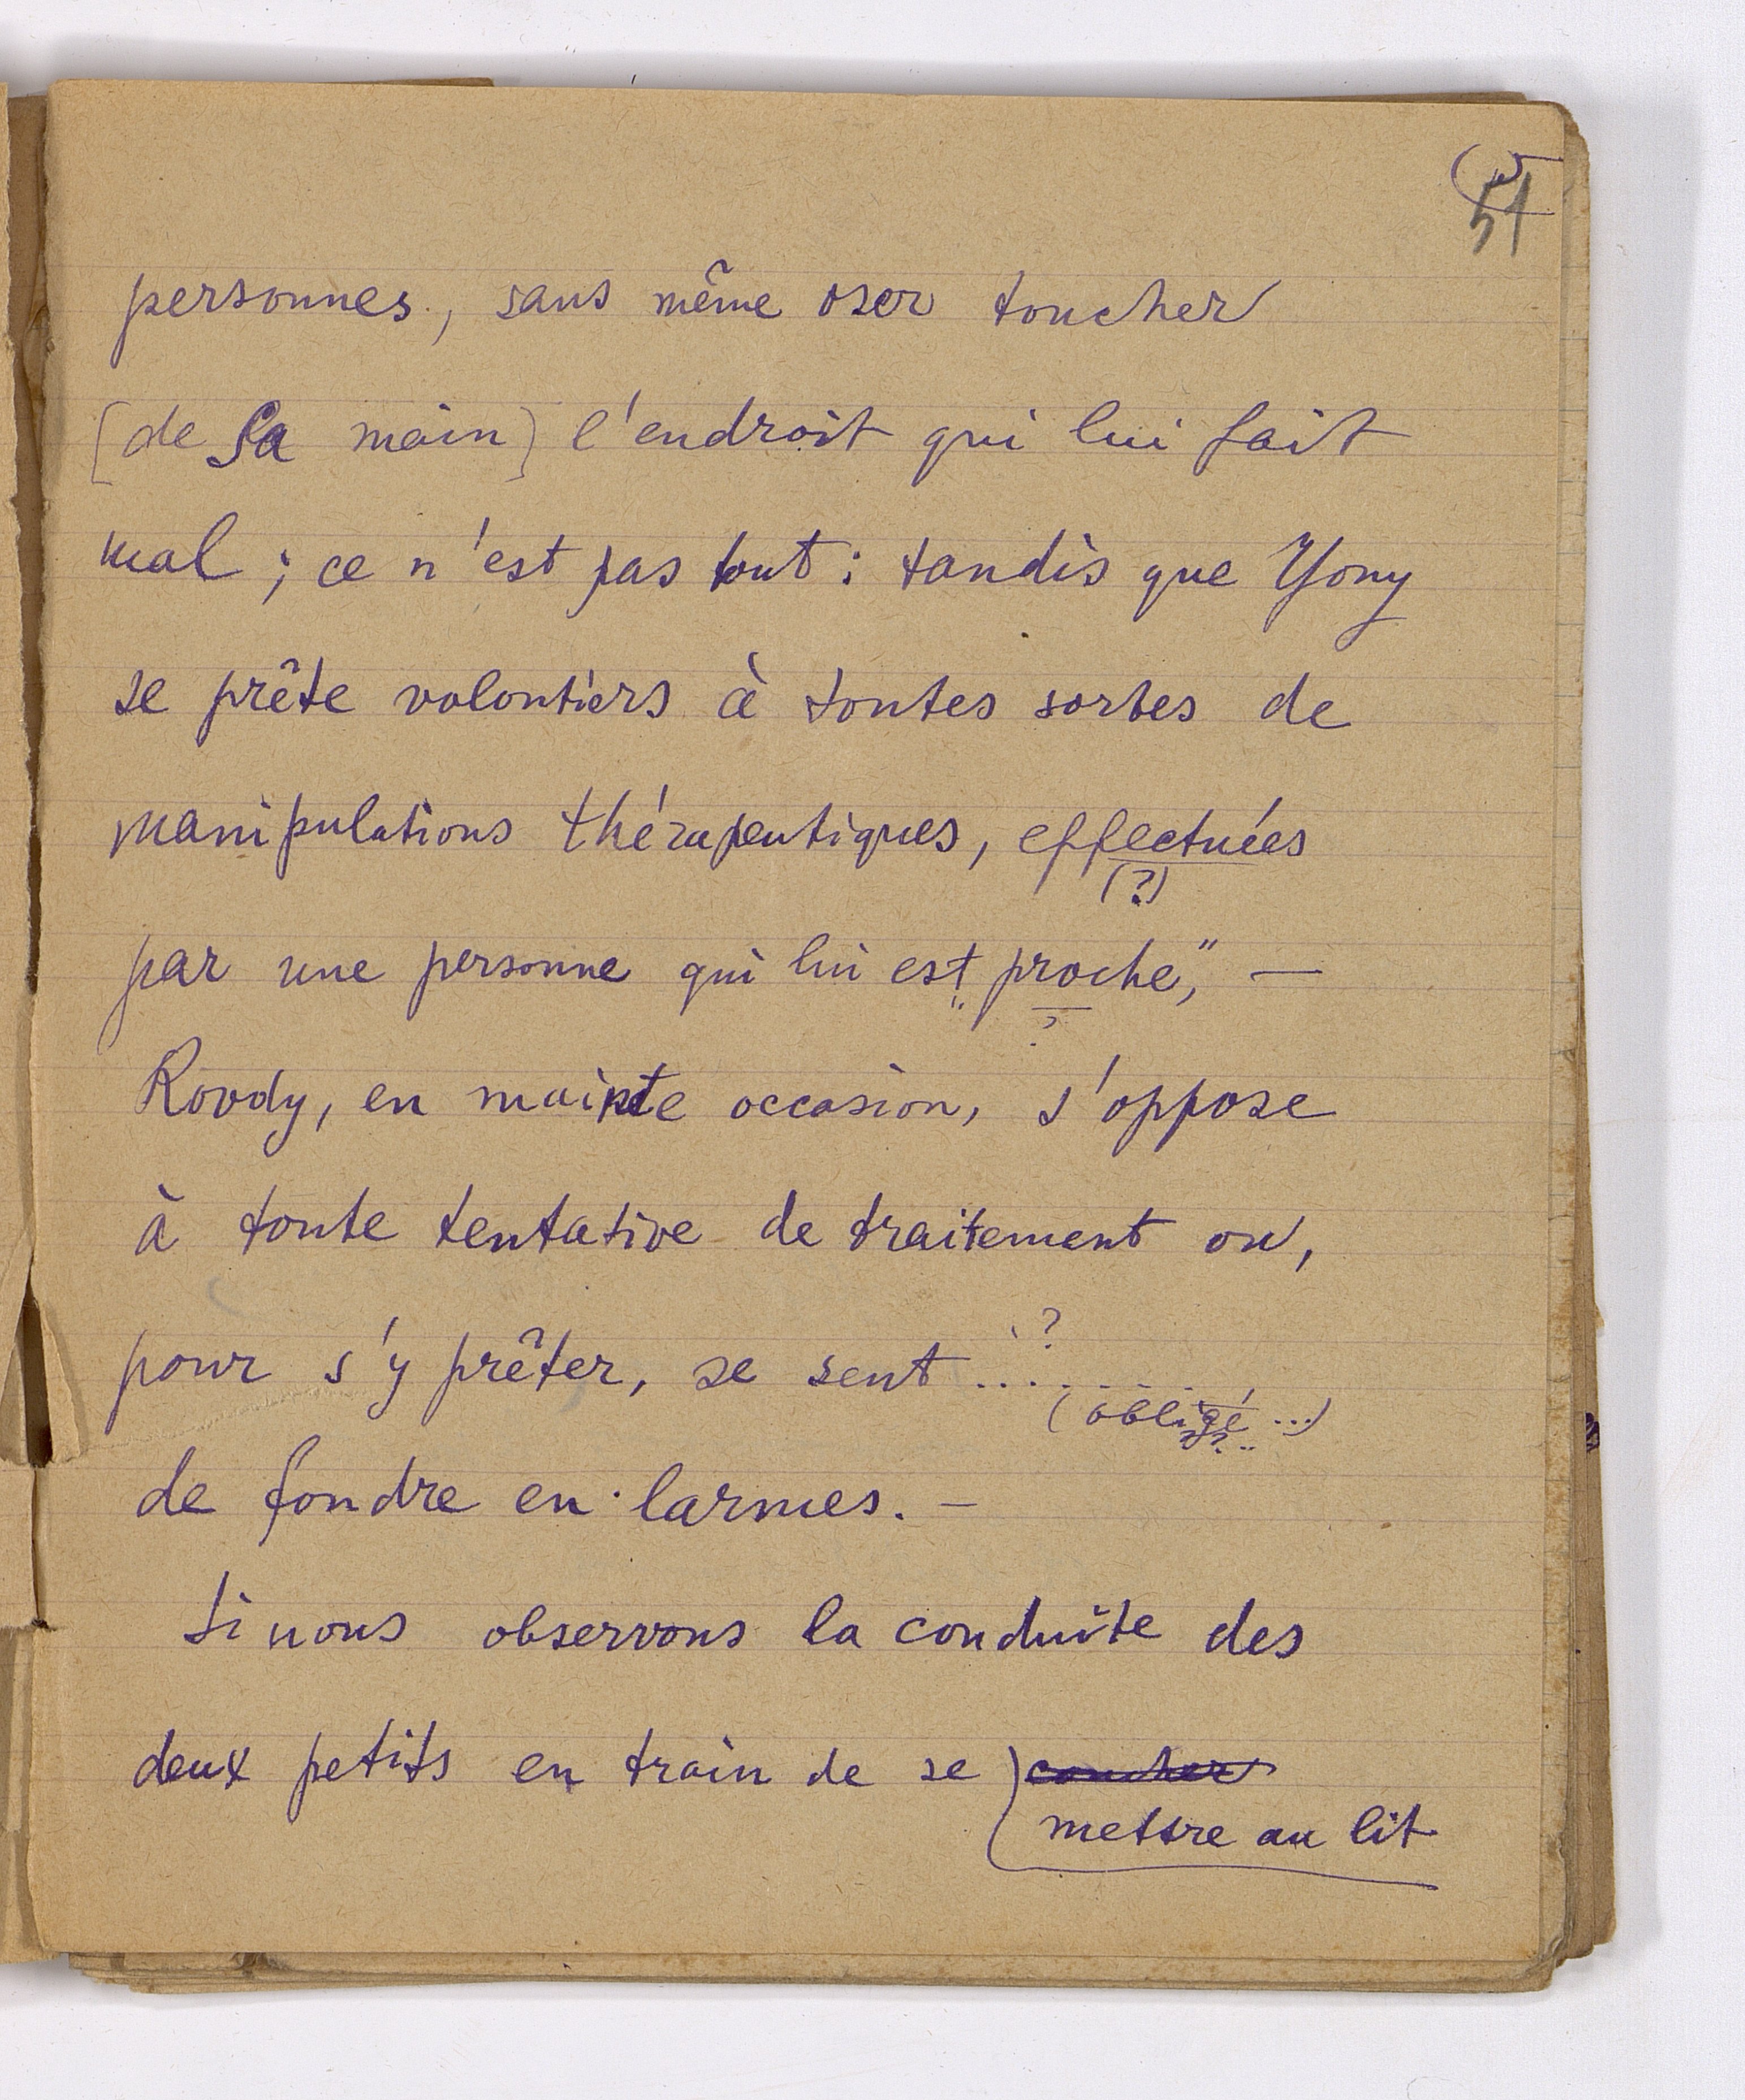 51
personnes, sans même oser toucher
[de sa main] l'endroit qui lui fait
mal ; ce n'est pas tout : tandis que Yony
se prête volontiers à toutes sortes de
manipulations thérapeutiques, effectuées
(?)
par une personne qui lui est „proche”, —
?
Roody, en mainte occasion, s'oppose
à toute tentative de traitement ou,
pour s'y prêter, se sent ......... ?
(obligé ...)
de fondre en larmes. —
Si nous observons la conduite des
deux petits en train de se coucher
mettre au lit